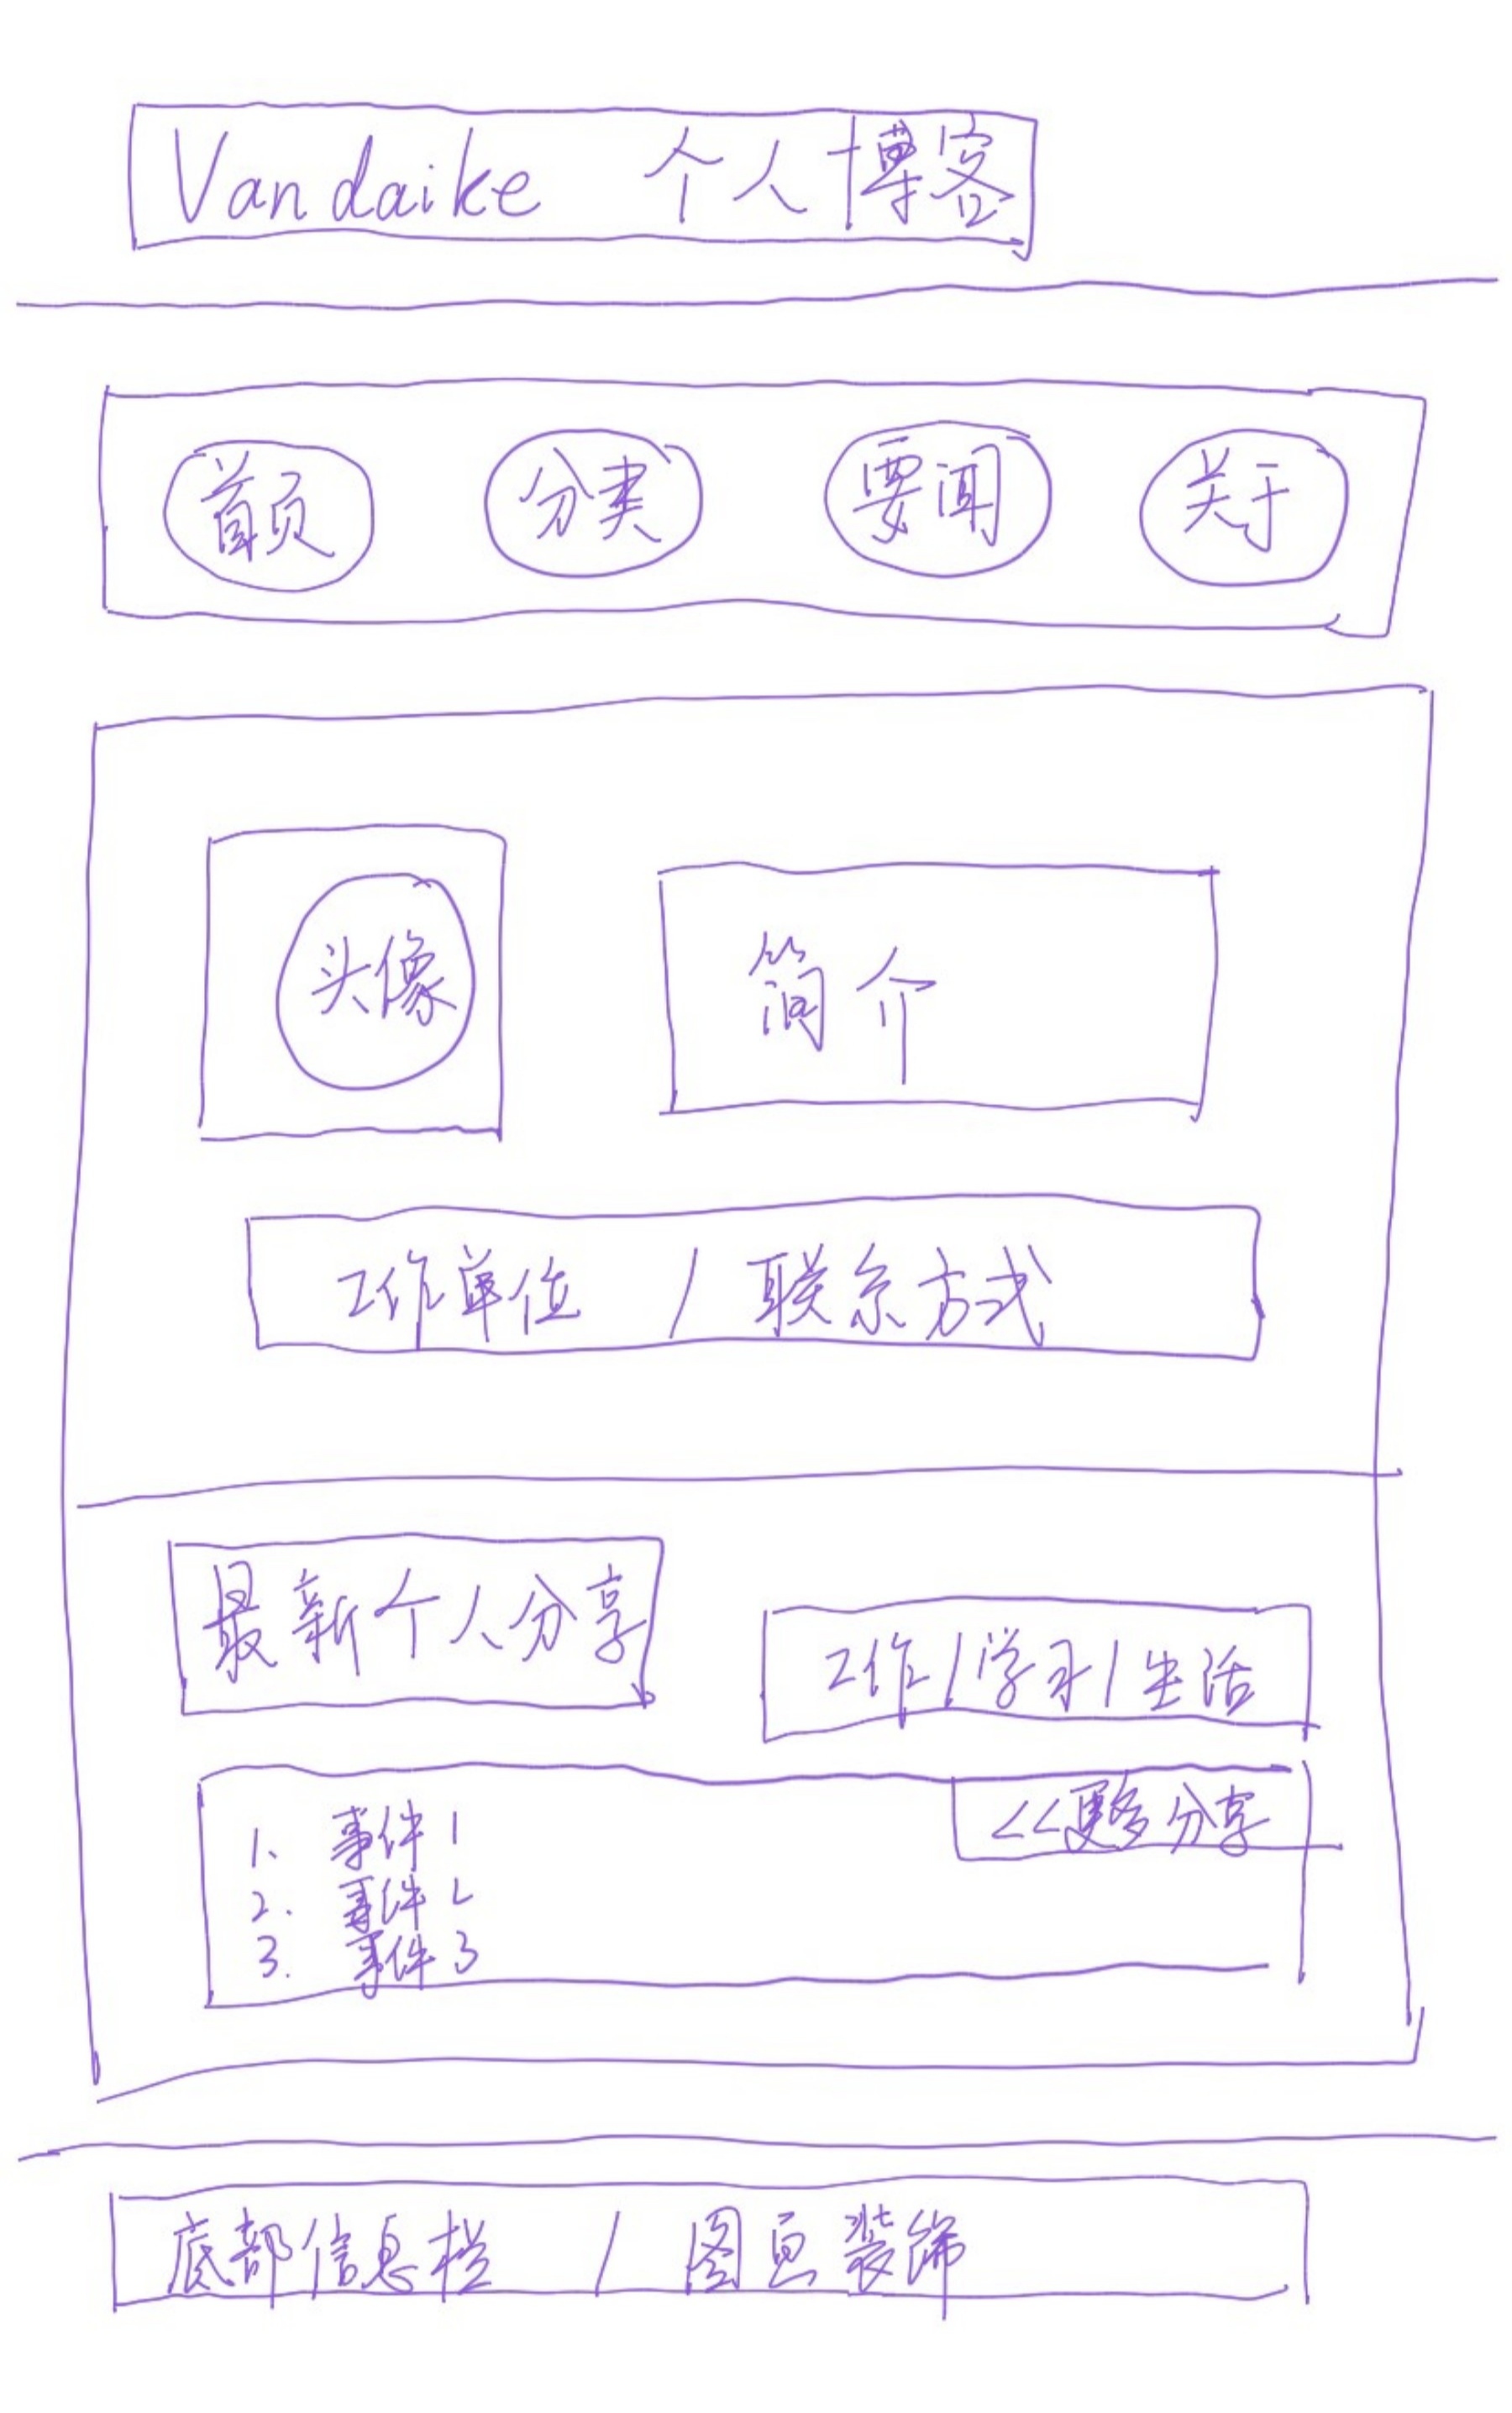 Vandaike 个人博客
首页 分类 要闻 关于
头像
简介
工作单位 / 联系方式
最新个人分享
工作/学习/生活
<<更多分享
1、事件1
2. 事件2
3. 事件3
底部信息栏 / 图标装饰